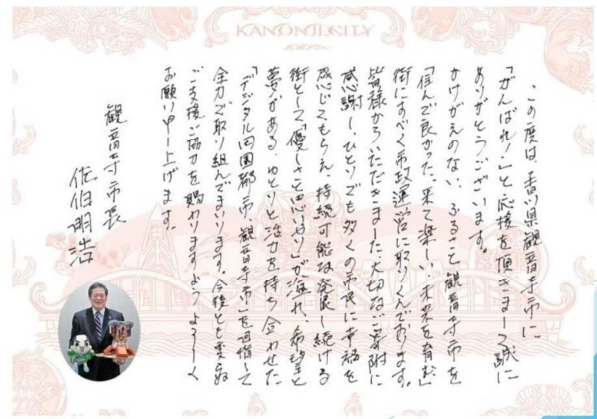 KANONJI CITY
この度は、香川県観音寺市に
「がんばれ!」と応援を頂きまして誠に
ありがとうございます。
かけがえのない、ふるさと観音寺市を
「住んで良かった、来て楽しい、未来を育む」
街にすべく市政運営に取りくんでおります。
皆様からいただきました大切なご寄附に
感謝し、ひとりでも多くの市民に幸福を
感じてもらえ、持続可能な発展し続ける
街として「優しさと思いやり」が溢れ、希望と
夢がある、ゆとりと活力を持ち合わせた
「デジタル田園都市、観音寺市」を目指して
全力で取り組んでまいります。今後とも変わらぬ
ご支援ご協力を賜わりますようよろしく
お願い申し上げます。
観音寺市長
佐伯明浩